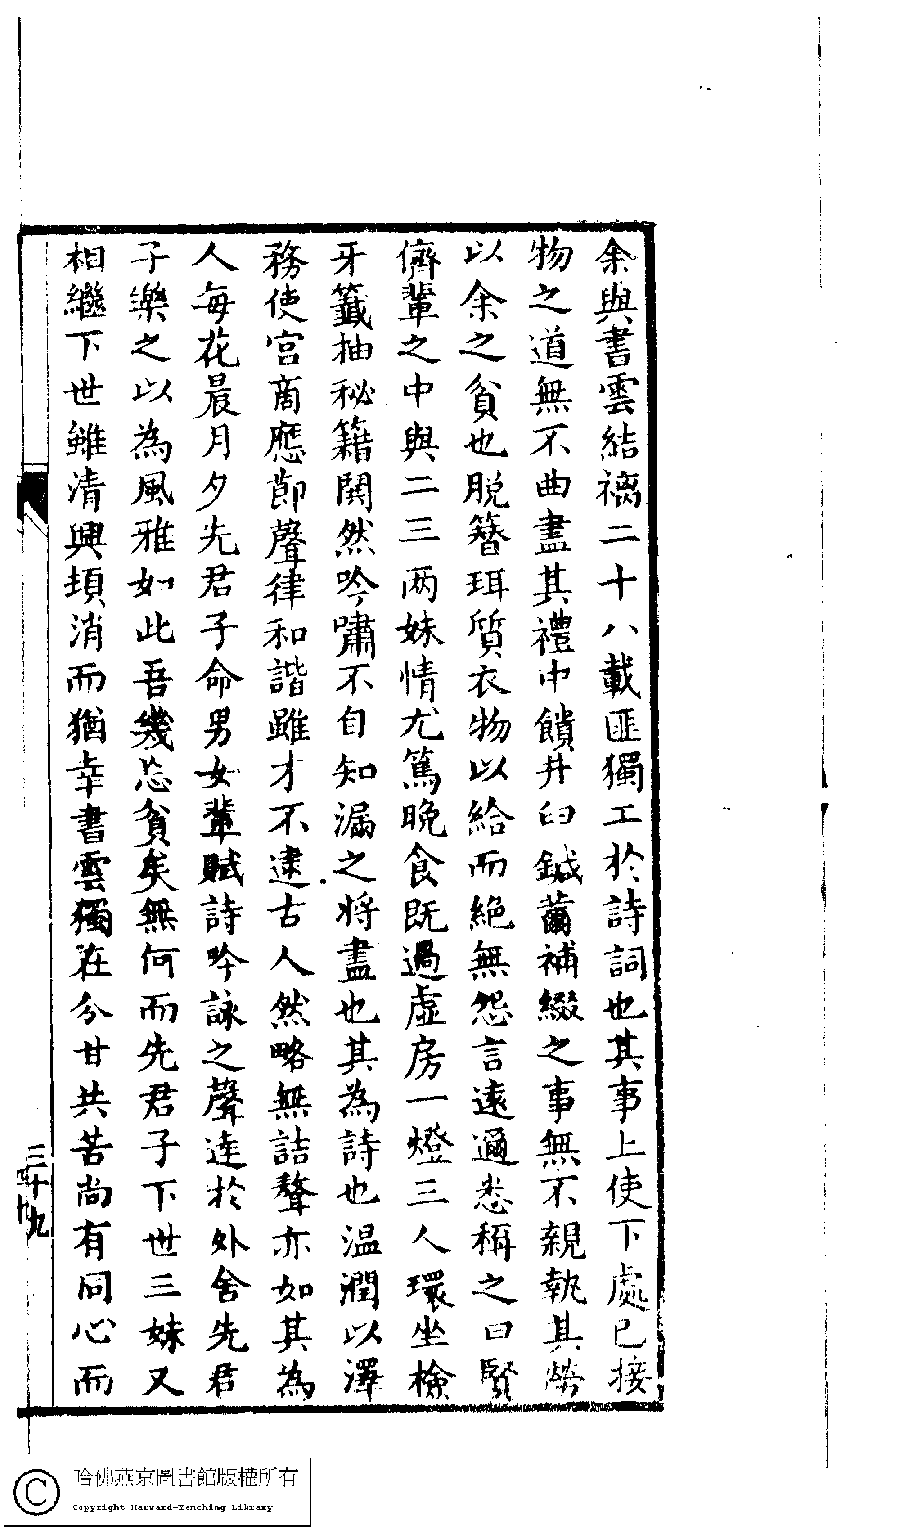 余與書雲結褵二十八載匪獨工於詩詞也其事上使下處己接
物之道無不曲盡其禮中饋井臼鍼黹補綴之事無不親執其勞
以余之貧也脱簪珥質衣物以給而絶無怨言遠邇悉稱之曰賢
儕輩之中與二三兩妹情尤篤晚食既過虛房一燈三人環坐檢
牙籤抽秘籍鬨然吟嘯不自知漏之將盡也其為詩也温潤以澤
務使宮商應節聲律和諧雖才不逮古人然略無詰聱亦如其為
人每花晨月夕先君子命男女輩賦詩吟詠之聲達於外舍先君
子樂之以為風雅如此吾幾忘貧矣無何而先君子下世三妹又
相繼下世雖清興頓消而猶幸書雲獨在分甘共苦尚有同心而
三十九
哈佛燕京圖書館版權所有
Copyright Harvard-Yenching Library